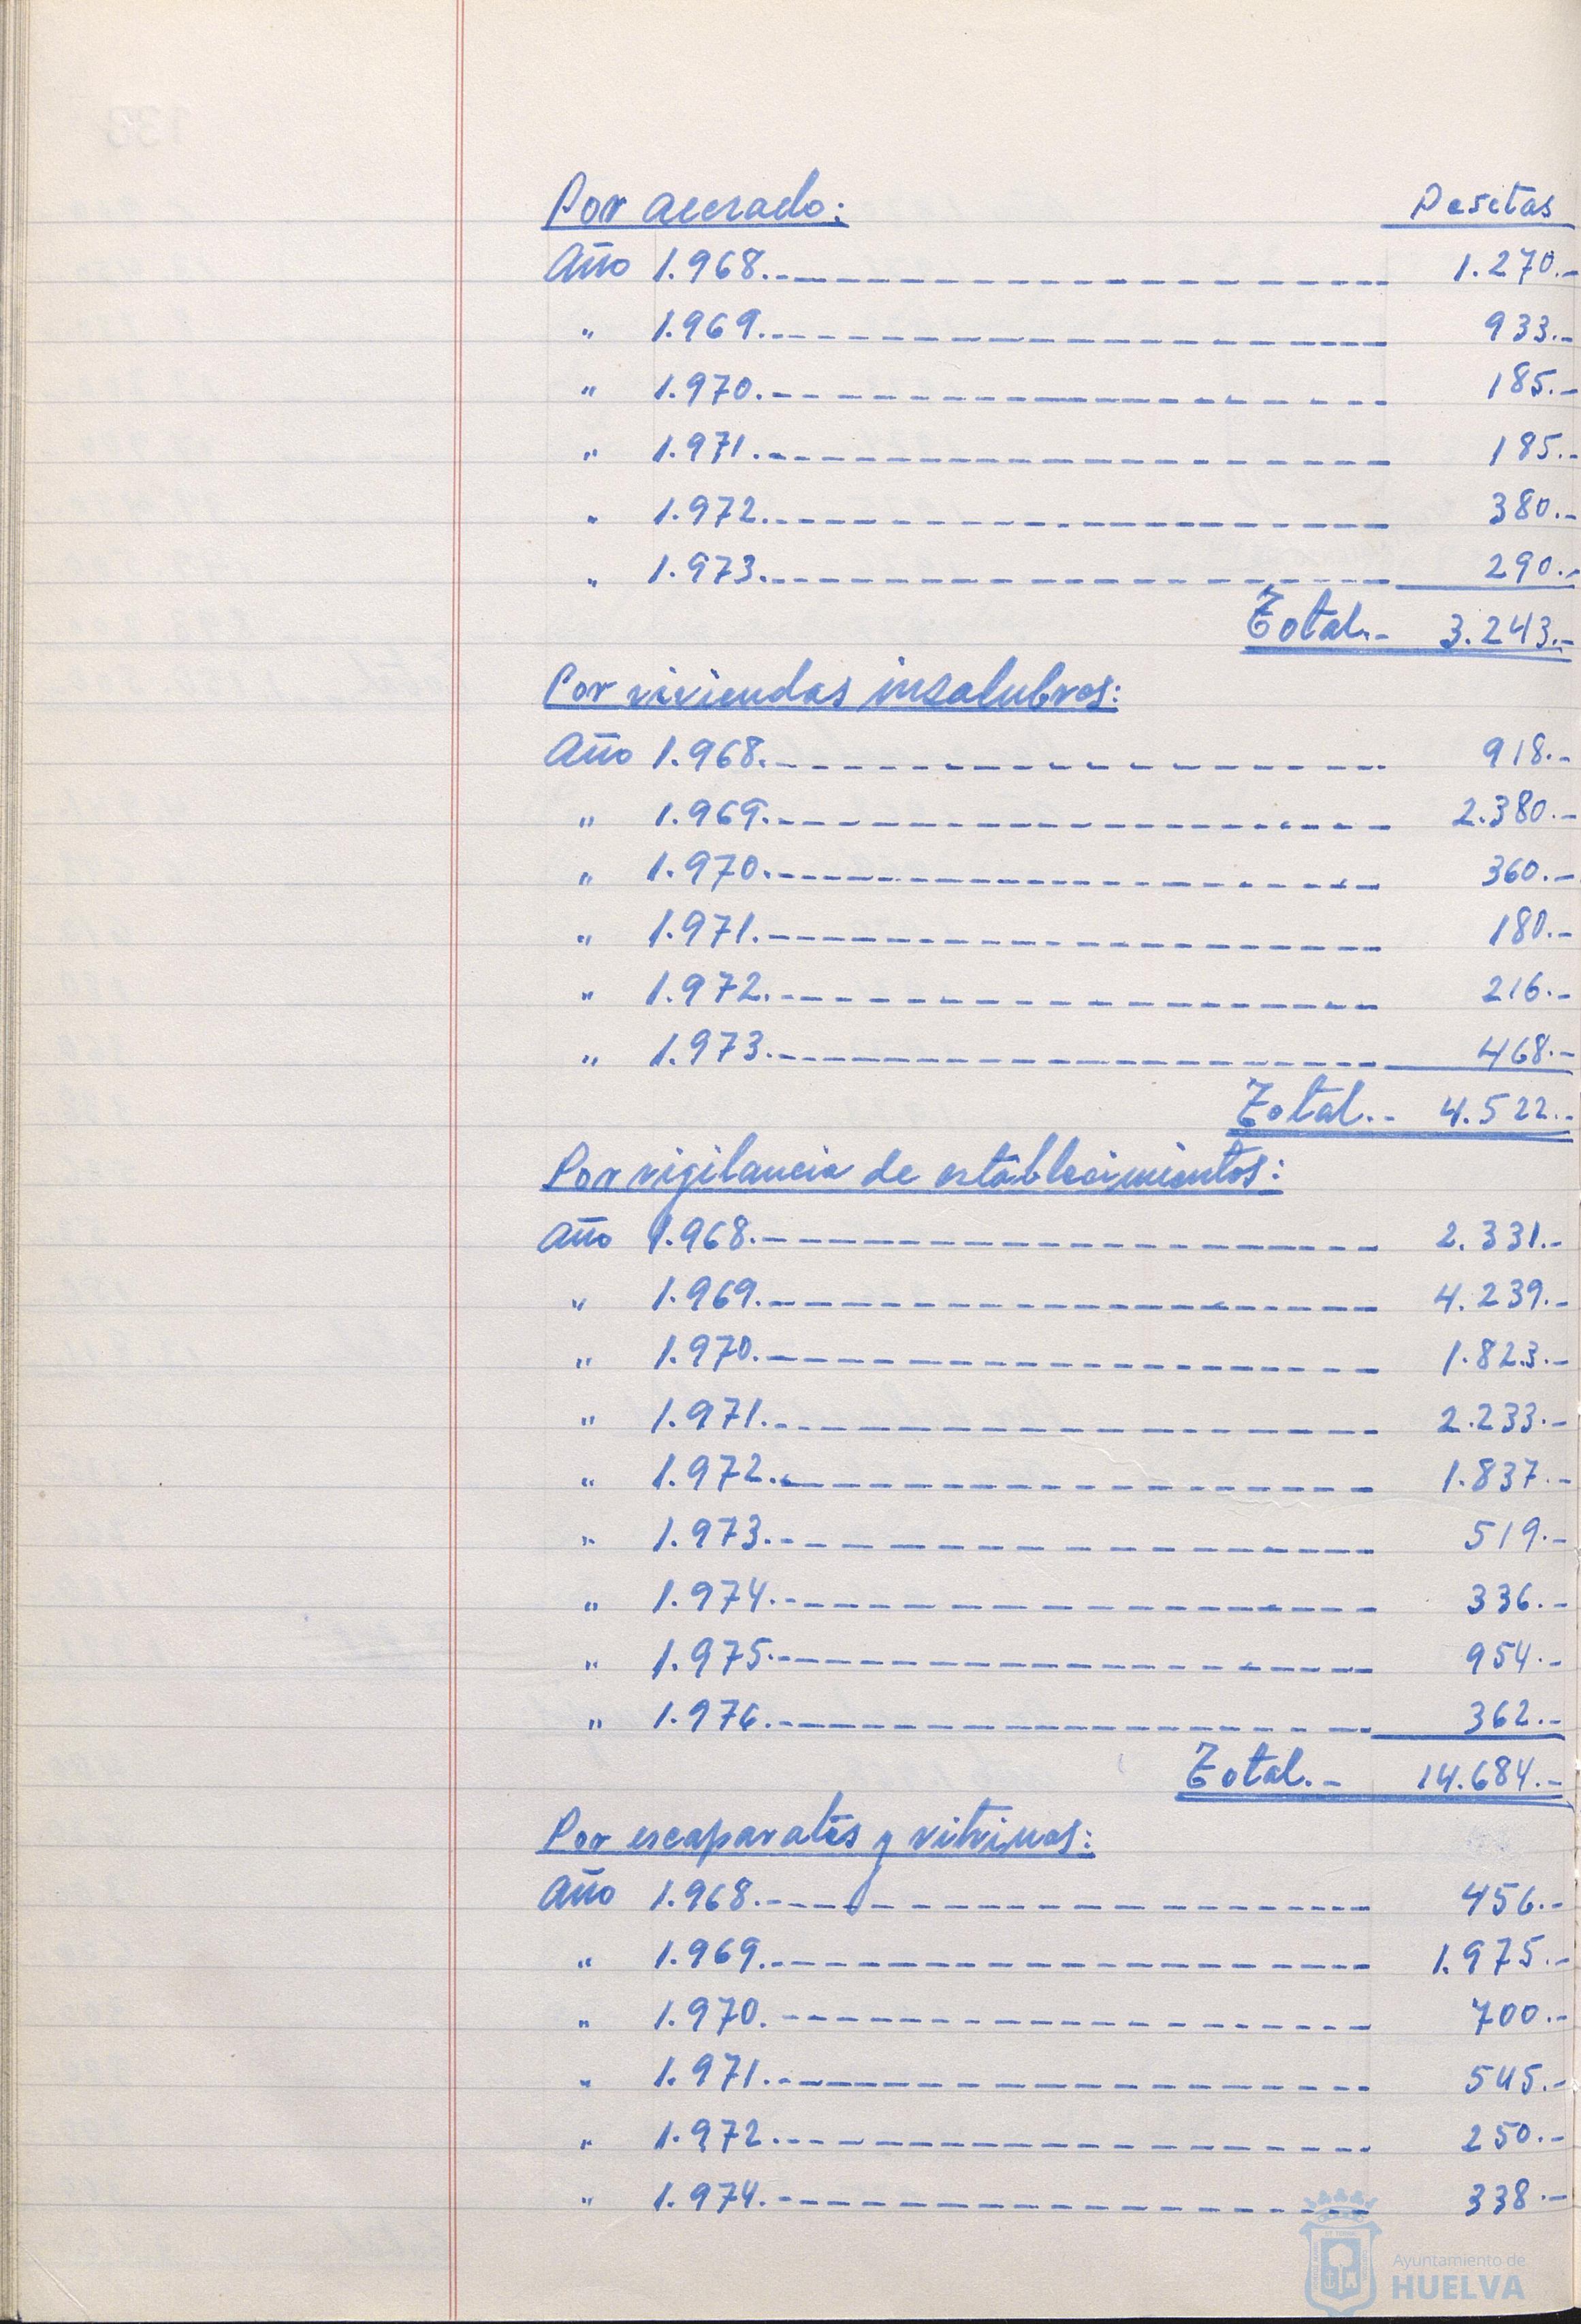 Por acerado: Pesetas
Año 1.968.- 1.270.-
" 1.969.- 933.-
" 1.970.- 185.-
" 1.971.- 185.-
" 1.972.- 380.-
" 1.973.- 290.-
Total.- 3.243.-
Por viviendas insalubres:
Año 1.968.- 918.-
" 1.969.- 2.380.-
" 1.970.- 360.-
" 1.971.- 180.-
" 1.972.- 216.-
" 1.973.- 468.-
Total.- 4.522.-
Por vigilancia de establecimientos:
Año 1.968.- 2.331.-
" 1.969.- 4.239.-
" 1.970.- 1.823.-
" 1.971.- 2.233.-
" 1.972.- 1.837.-
" 1.973.- 519.-
" 1.974.- 336.-
" 1.975.- 954.-
" 1.976.- 362.-
Total.- 14.684.-
Por escaparates y vitrinas:
Año 1.968.- 456.-
" 1.969.- 1.975.-
" 1.970.- 700.-
" 1.971.- 545.-
" 1.972.- 250.-
" 1.974.- 338.-
Ayuntamiento de
HUELVA